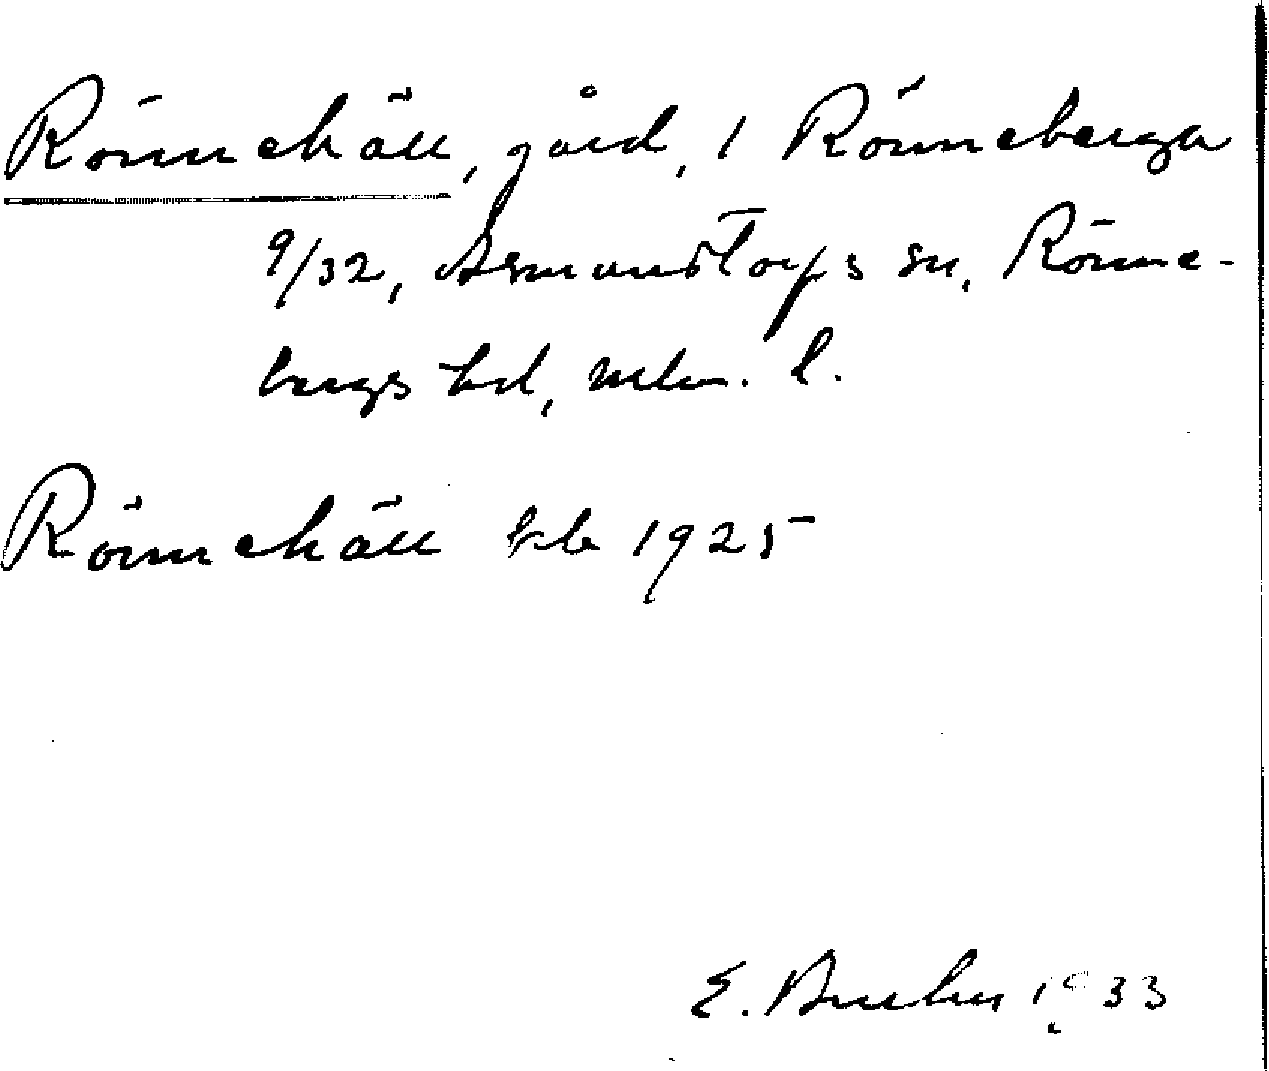 Rönnehäll, gård, 1 Rönneberga
9/32, Asmundtorps sn, Rönne-
bergs hd, Mlm. l.
Rönnehäll kb 1925
E. 1933